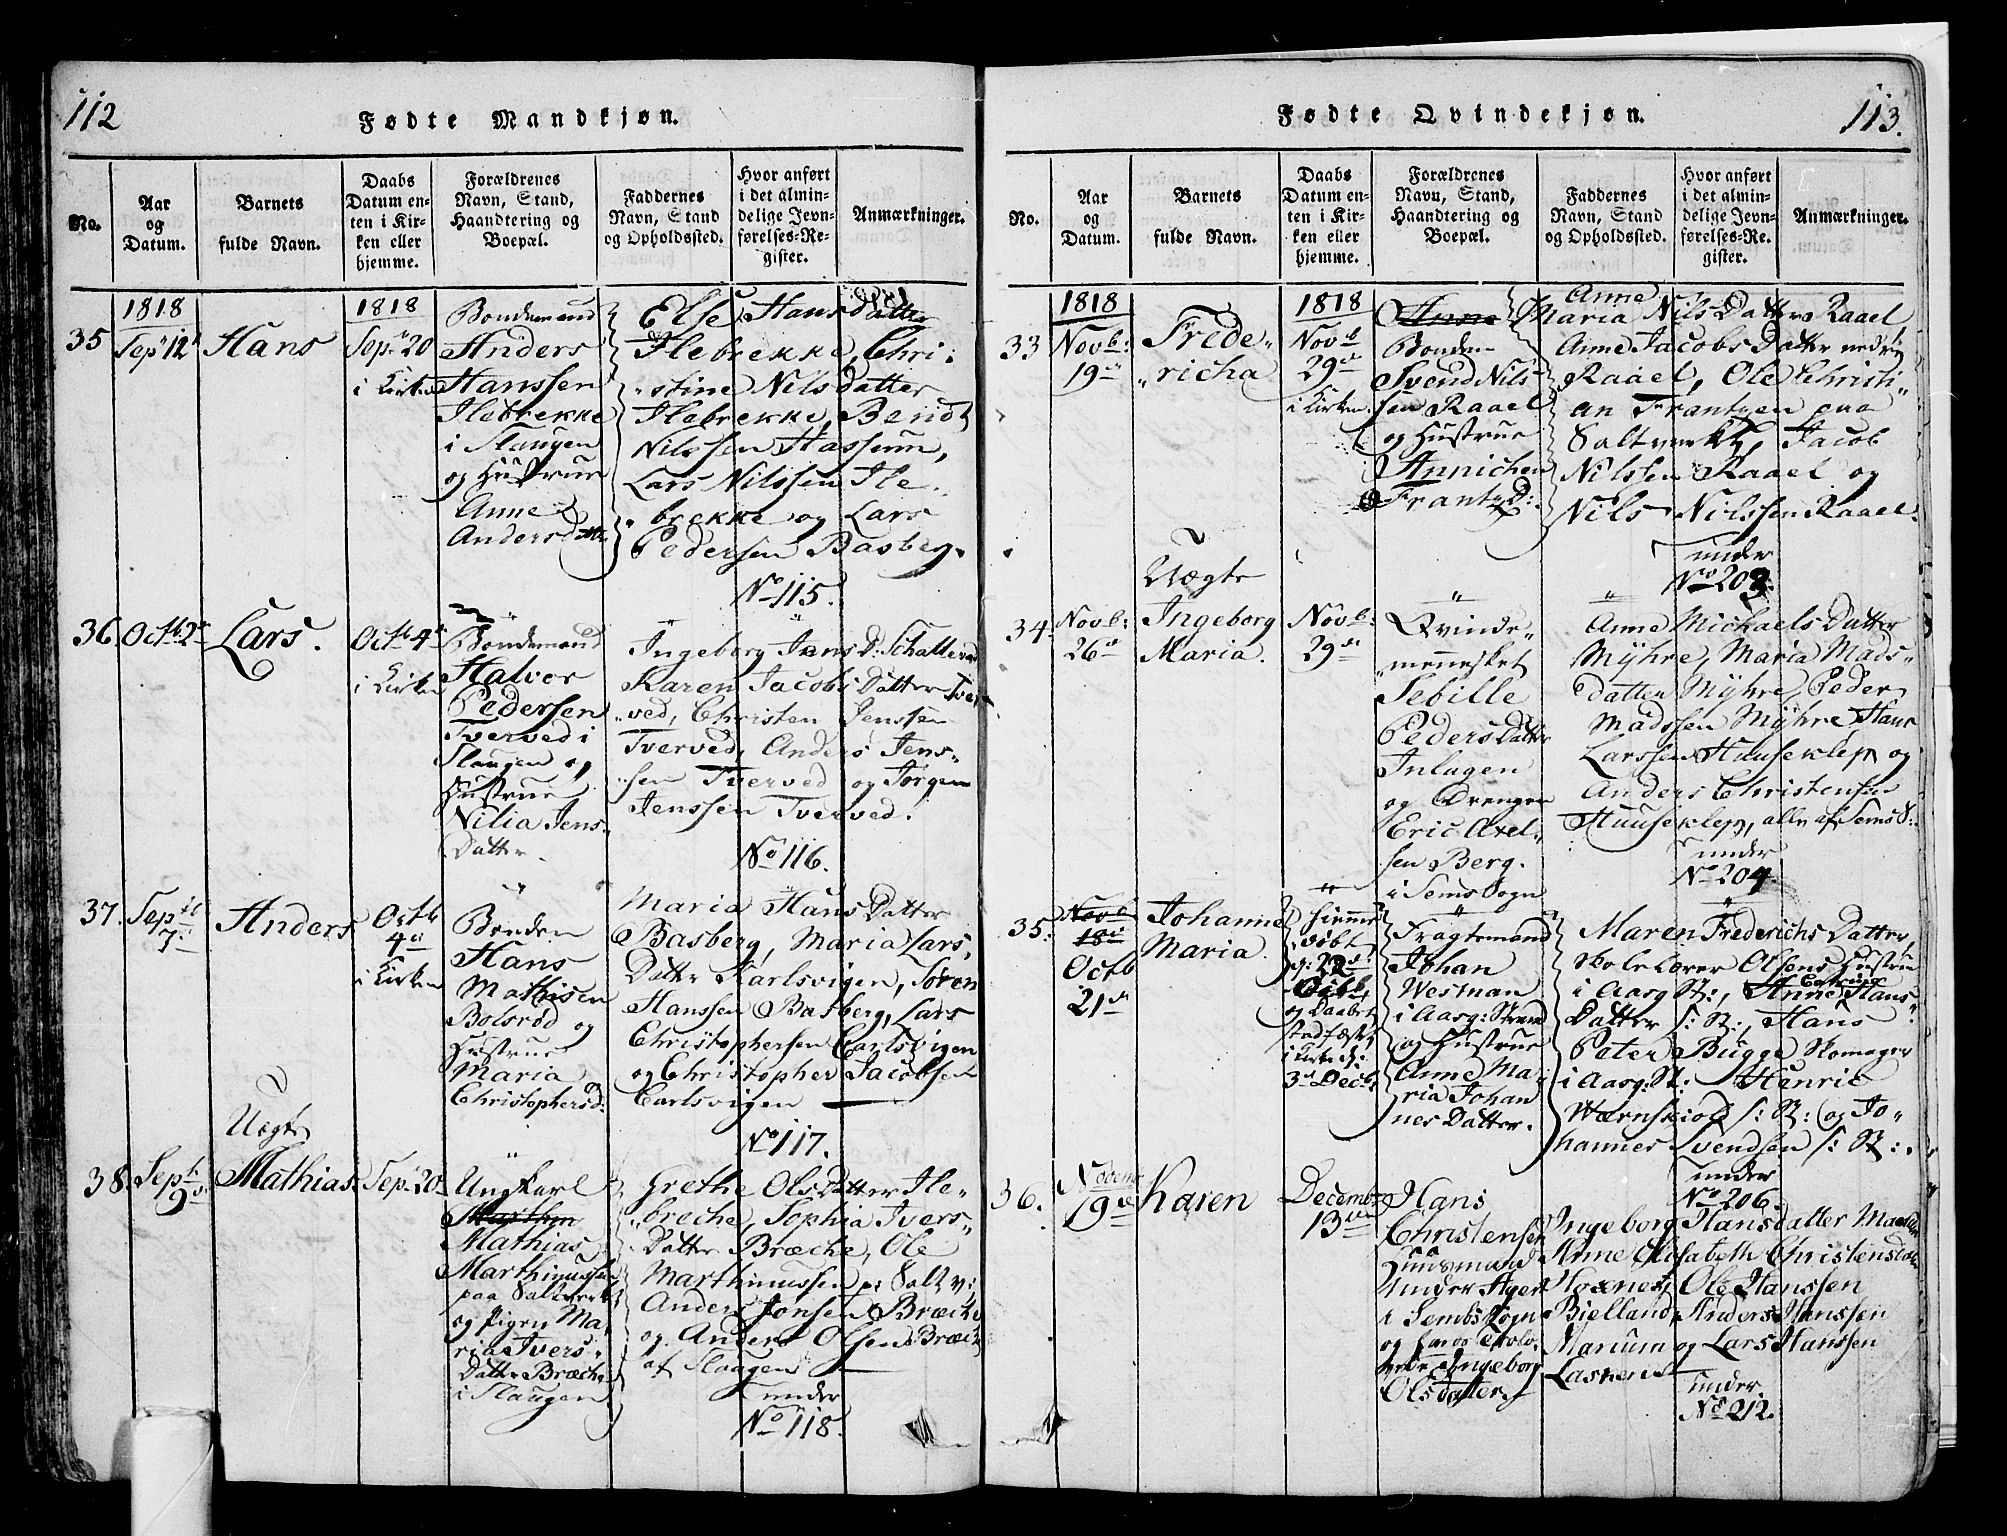 112
Fødte Mandkjøn.
No.
Aar
og
Datum.
Barnets
fulde Navn.
Daabs
Datum en-
ten i Kir-
ken eller
hjemme.
Forældrenes
Navn, Stand,
Haandtering og
Boepæl.
Faddernes
Navn, Stand
og Opholdssted.
Hvor anført
i det almin-
delige Jevn-
førelses-Re-
gister.
Anmærkninger.
35
1818
Sepr 12
Hans
1818
Sepr 20
i Kirken
Bondemand
Anders
Hanssen
Ilebrekke
i Slaugen
og Hustrue
Anne
Anders datter
Else Hans datter
Ilebrekke, Chri-
stine Nils datter
Ilebrekke, Bendt
Nilssen Hassum,
Lars Nilssen Ile-
brekke og Lars
Pedersen Basberg.
No 115.
36.
Octb 2
Lars.
Octb 4
i Kirken
Bondemand
Halvor
Pedersen
Tverved i
Slaugen og
Hustrue
Nilia Jens
Datter.
Ingeborg Jans D:
Karen Jacobs Datter Tver
ved, Christen Jenssen
Tverved, Anders Jens-
sen Tverved og Jørgen
Jenssen Tverved.
No 116.
37.
Sepb
7
Anders
Octb
4
i Kirken
Bonden
Hans
Mathisen
Bolsrød og
Hustrue
Maria
Christophersd:
Maria Hans Datter
Basberg, Maria Lars,
Datter Karlsvigen, Søren
Hanssen Basberg, Lars
Christophersen Carlsvigen
og Christopher Jacobsen
Carlsvigen
No 117.
38.
Sepb
9
Uægte
Mathias.
Sepr 20
Ungkarl
Mathias
Marthinussen
paa Saltverk
og Pigen Ma,
ria Ivers
Datter Bræche
i Slaugen
Grethe Ols Datter Ile-
breche, Sophia Ivers
Datter Bræche, Ole
Marthinussen p: Saltv:
Anders Jonsen Bræche
og Anders Olsen Bræche
af Slaugen
under
No 118.
113.
Fødte Qvindekjøn.
No.
Aar
og
Datum.
Barnets
fulde Navn.
Daabs
Datum en-
ten i Kir-
ken eller
hjemme.
Forældrenes
Navn, Stand,
Haandtering og
Boepæl.
Faddernes
Navn, Stand
og Opholdssted.
Hvor anført
i det almin-
delige Jevn-
førelses-Re-
gister.
Anmærkninger.
33
1818
Novb:
19
Frede-
richa
1818
Novb
29
i Kirken.
Anne
Bonden
Svend Nils-
sen Raael
og Hustrue
Annichen
Frantz D:
Anne
Maria Nils Datter Raael
Anne Jacobs Datter nedrig
Raael, Ole Christi-
an Frantzen paa
Saltverkt, Jacob
Nilssen Raael og
Nils Nilssen Raael.
under
No 203.
34.
Novb:
26
Uægte
Ingeborg
Maria.
Novb:
29
Qvinde-
mennesket
Sebille
Peders Datter
Inlagen
og Drengen
Eric Axel-
sen Berg.
i Sems Sogn
Anne Michaels Datter
Myhre, Maria Mads-
datter Myhre, Peder
Madssen Myhre, Hans
Larssen Hauseklep og
Anders Christensen
Hauseklep, alle af Sems S:
under
No 204.
35.
Novb
18
Octb
21
Johanne
Maria.
hiemme
døbt
d: 22
Octb,
og Daabet
stadfæstet
i Kirke d:
3 Decb,
Fragtemand
Johan
Westman
i Aasg: Strand
og Hustrue
Anne Ma-
ria Johan
nes Datter.
Maren Frederichs Datter,
Skolelærer Olsens Hustrue
i Aasg St:, Anne Cathrine Hans
Datter s: St:, Hans
Peter Bugge Skomager
i Aasg: St: Henric
Wærnskiold s: St: og Jo-
hannes Svendsen s: St:.
under
No 206.
36.
Novembr
19
Karen
Decembr
13
Hans
Christensen
Huusmand
under Ager
i Sembs Sogn
Ingeborg
Olsdatter.
Ingeborg Hansdatter
Anne Elisabeth Christensdatter
Ole Hanssen
Bjelland, Anders Hanssen
Marium og Lars Hanssen
under
No 212.